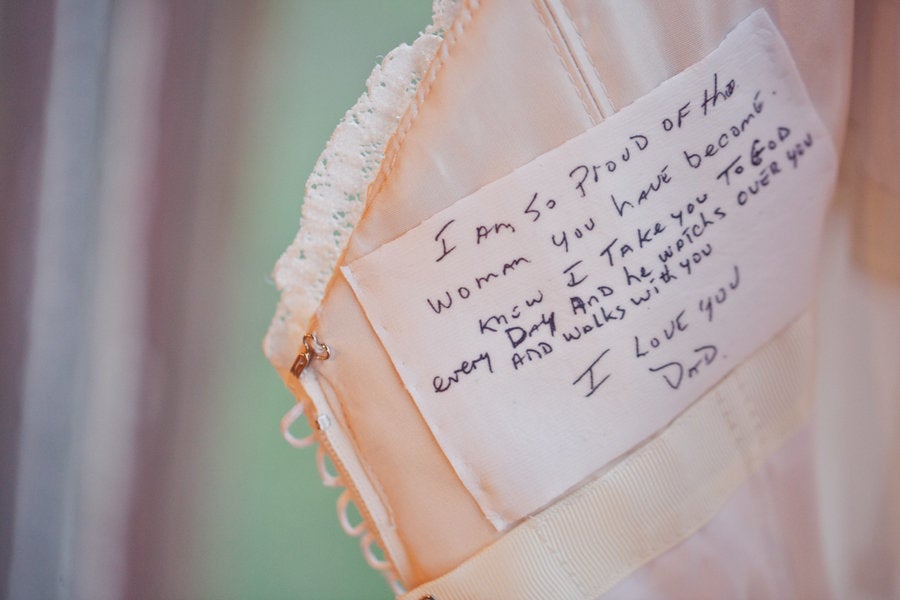 I Am So Proud of the
Woman you have become.
know I Take you To God
every Day And he watchs over you
And walks with you
I Love you
Dad.